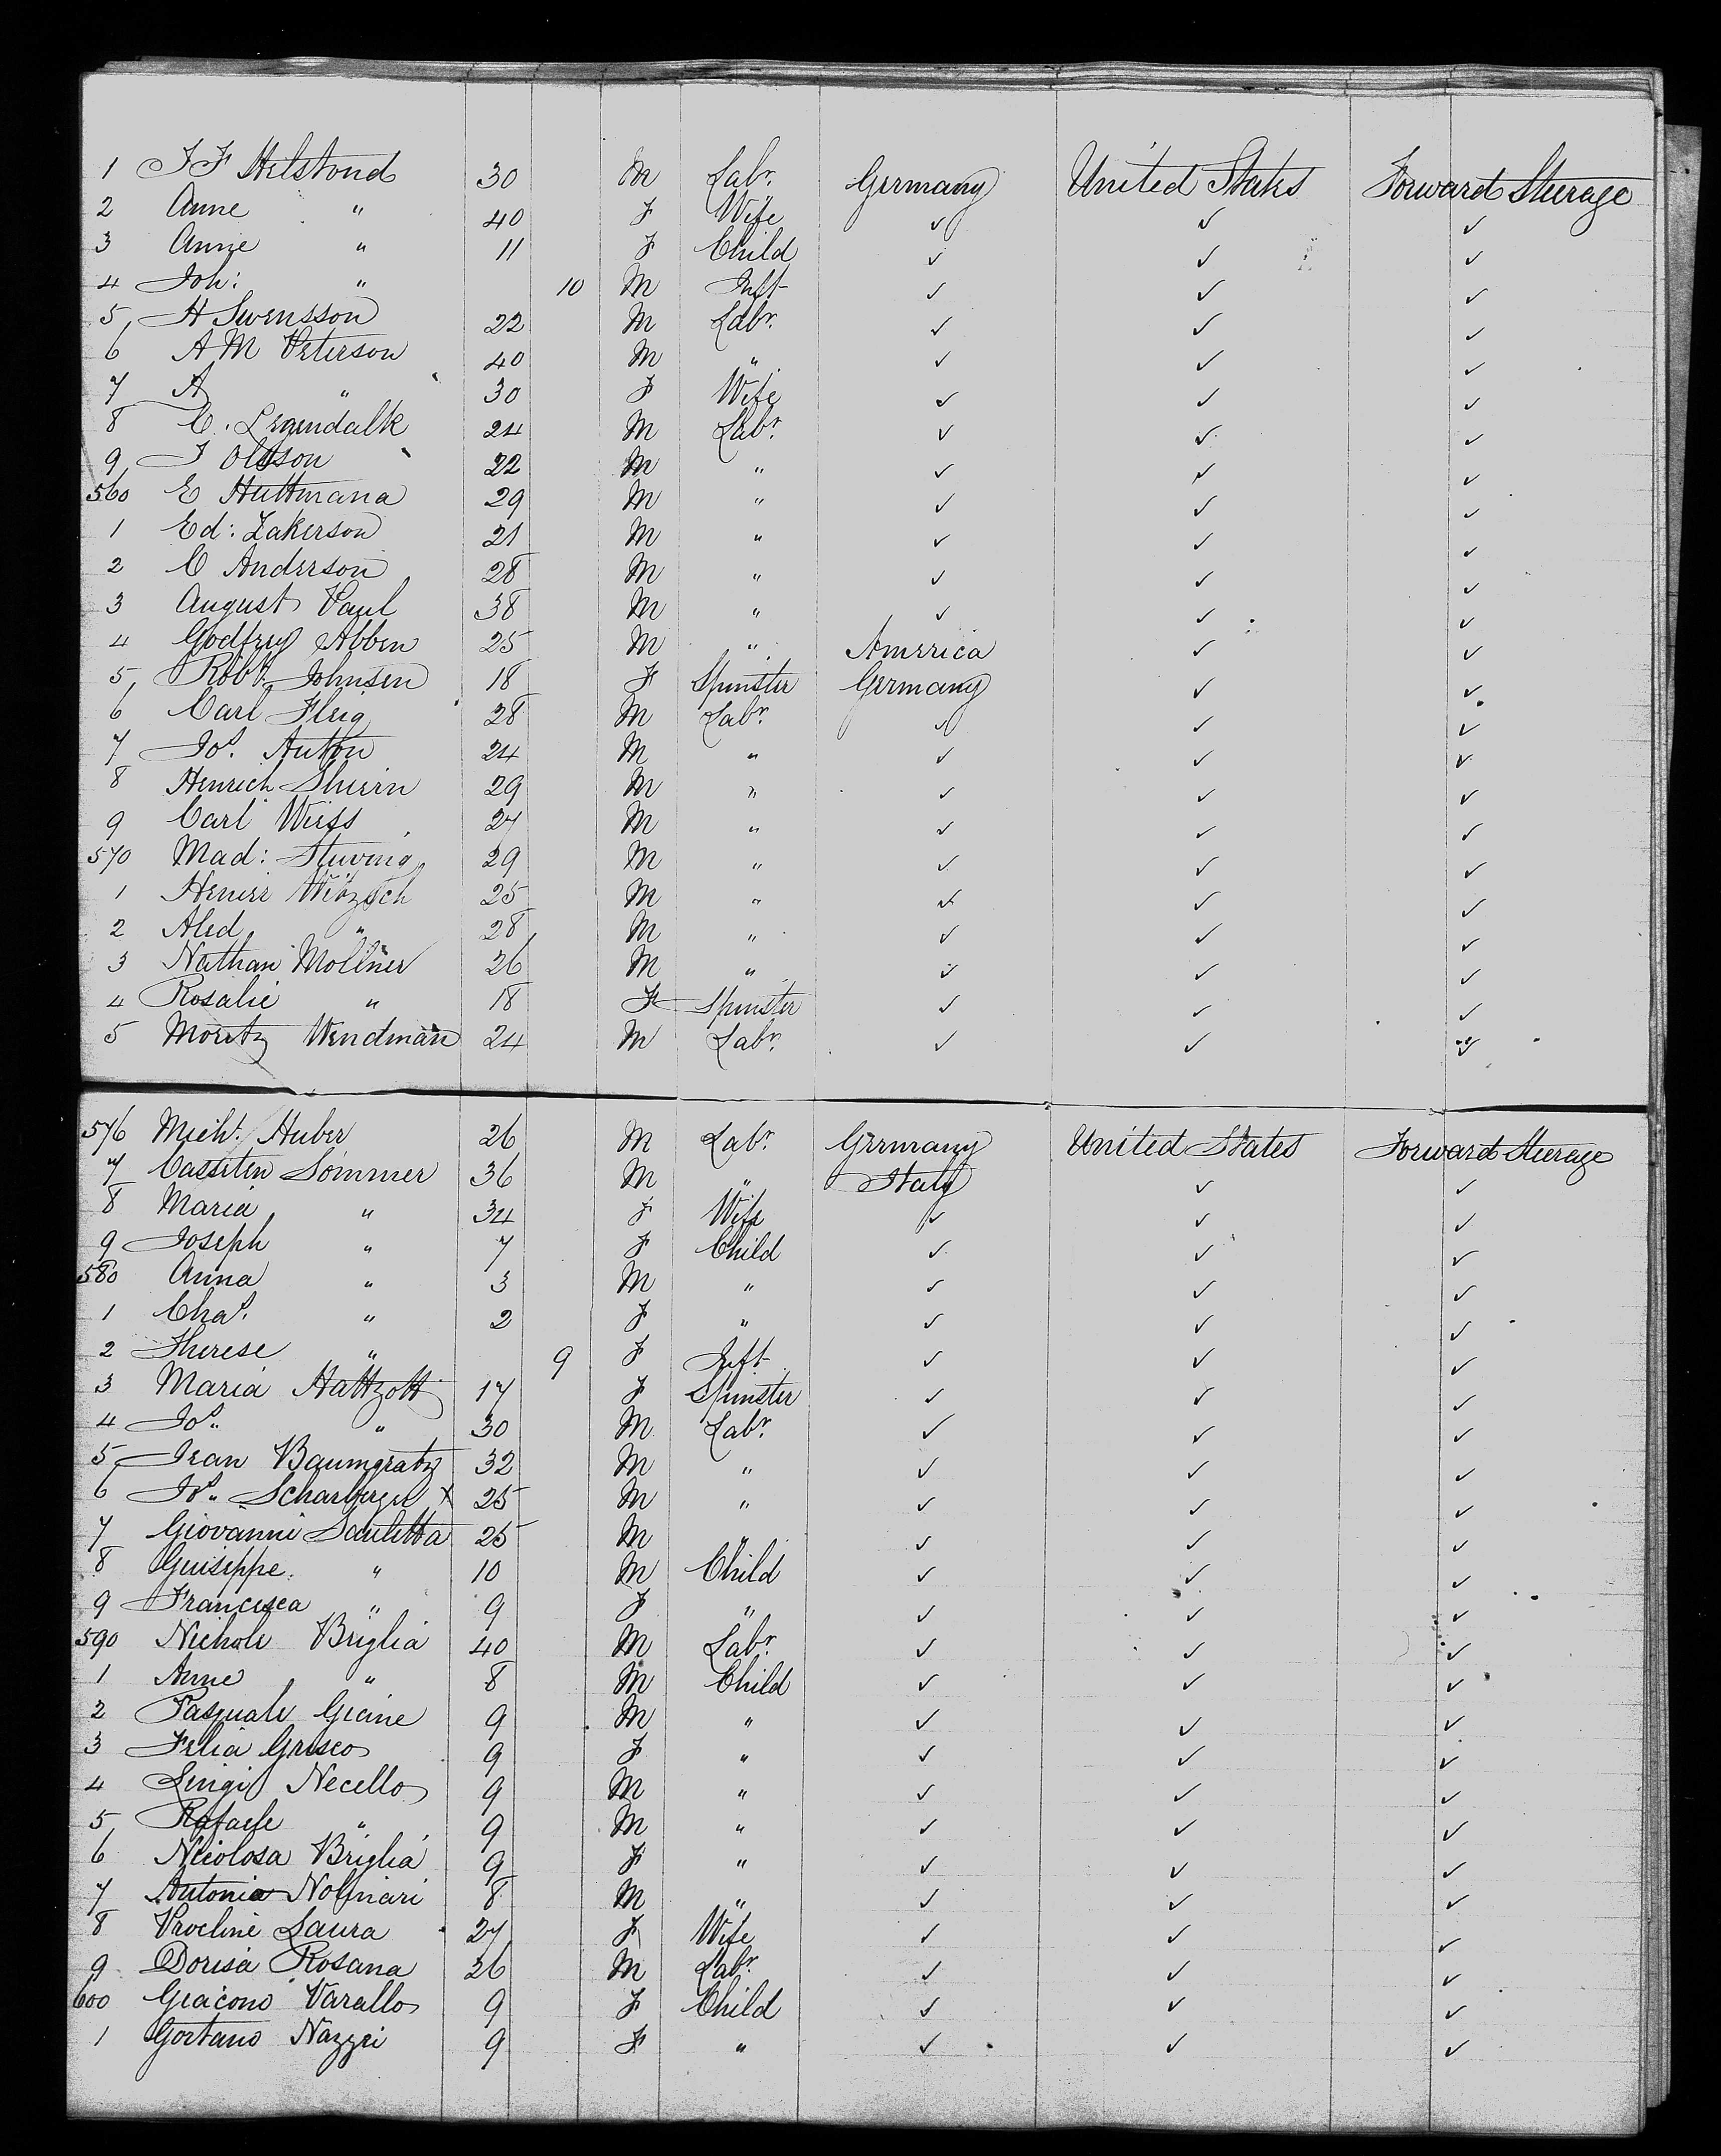 1 J F Hilstond 30 M Labr. Germany United States Forward Steerage
2 Anne " 40 F Wife ✓ ✓ ✓
3 Anne " 11 F Child ✓ ✓ ✓
4 Joh: " 10 M Inft ✓ ✓ ✓
5 H Swensson 22 M Labr. ✓ ✓ ✓
6 A M Peterson 40 M " ✓ ✓ ✓
7 A " 30 F Wife ✓ ✓ ✓
8 C. Legendalk 24 M Labr. ✓ ✓ ✓
9 J Olsson 22 M " ✓ ✓ ✓
560 E Huttmana 29 M " ✓ ✓ ✓
1 Ed: Zakerson 21 M " ✓ ✓ ✓
2 C Anderson 28 M " ✓ ✓ ✓
3 August Paul 38 M " ✓ ✓ ✓
4 Godfrey Abben 25 M " America ✓ ✓
5 Robt. Johnsen 18 F Spinster Germany ✓ ✓
6 Carl Fleig 28 M Labr. ✓ ✓ ✓
7 Jos. Anton 24 M " ✓ ✓ ✓
8 Henrich 29 M " ✓ ✓ ✓
9 Carl Weiss 27 M " ✓ ✓ ✓
570 Mad: Stuving 29 M " ✓ ✓ ✓
1 25 M " ✓ ✓ ✓
2 Aled " 28 M " ✓ ✓ ✓
3 Nathan Mollner 26 M " ✓ ✓ ✓
4 Rosalie " 18 F Spinster ✓ ✓ ✓
5 Moritz Wendman 24 M Labr. ✓ ✓ ✓
576 Michl. Huber 26 M Labr. Germany United States Forward Steerage
7 Sommer 36 M " Italy ✓ ✓
8 Maria " 34 F Wife ✓ ✓ ✓
9 Joseph " 7 F Child ✓ ✓ ✓
580 Anna " 3 M " ✓ ✓ ✓
1 Chas. " 2 F " ✓ ✓ ✓
2 Therese " 9 F Inft ✓ ✓ ✓
3 Maria Hattzott 17 F Spinster ✓ ✓ ✓
4 Jos. " 30 M Labr. ✓ ✓ ✓
5 Jean Baumgratz 32 M " ✓ ✓ ✓
6 Jos. Scharberger x 25 M " ✓ ✓ ✓
7 Giovanni Sauletta 25 M " ✓ ✓ ✓
8 Guiseppe " 10 M Child ✓ ✓ ✓
9 Francesca " 9 F " ✓ ✓ ✓
590 Nichole Briglia 40 M Labr. ✓ ✓ ✓
1 Anne " 8 M Child ✓ ✓ ✓
2 Pasquale Giane 9 M " ✓ ✓ ✓
3 Felia Grisco 9 F " ✓ ✓ ✓
4 Luigi Necello 9 M " ✓ ✓ ✓
5 Rafaele " 9 M " ✓ ✓ ✓
6 Nicolosa Briglia 9 F " ✓ ✓ ✓
7 Antonio Nolfinari 8 M " ✓ ✓ ✓
8 Laura 27 F Wife ✓ ✓ ✓
9 Dorisa Rosana 26 M Labr. ✓ ✓ ✓
600 Giacono Varallo 9 F Child ✓ ✓ ✓
1 Gortano Nazzri 9 F " ✓ ✓ ✓